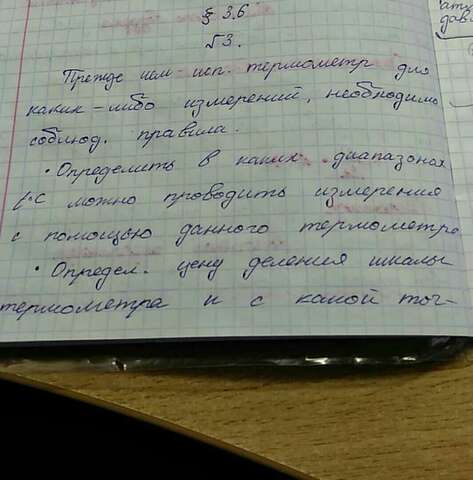 § 3.6
√3.
Прежде чем исп. термометр для
каких-либо измерений, необходимо
соблюд. правила.
• Определить в каких диапазонах
t°C можно проводить измерения
с помощью данного термометра
• Определ. цену деления шкалы
термометра и с какой точ-
дав